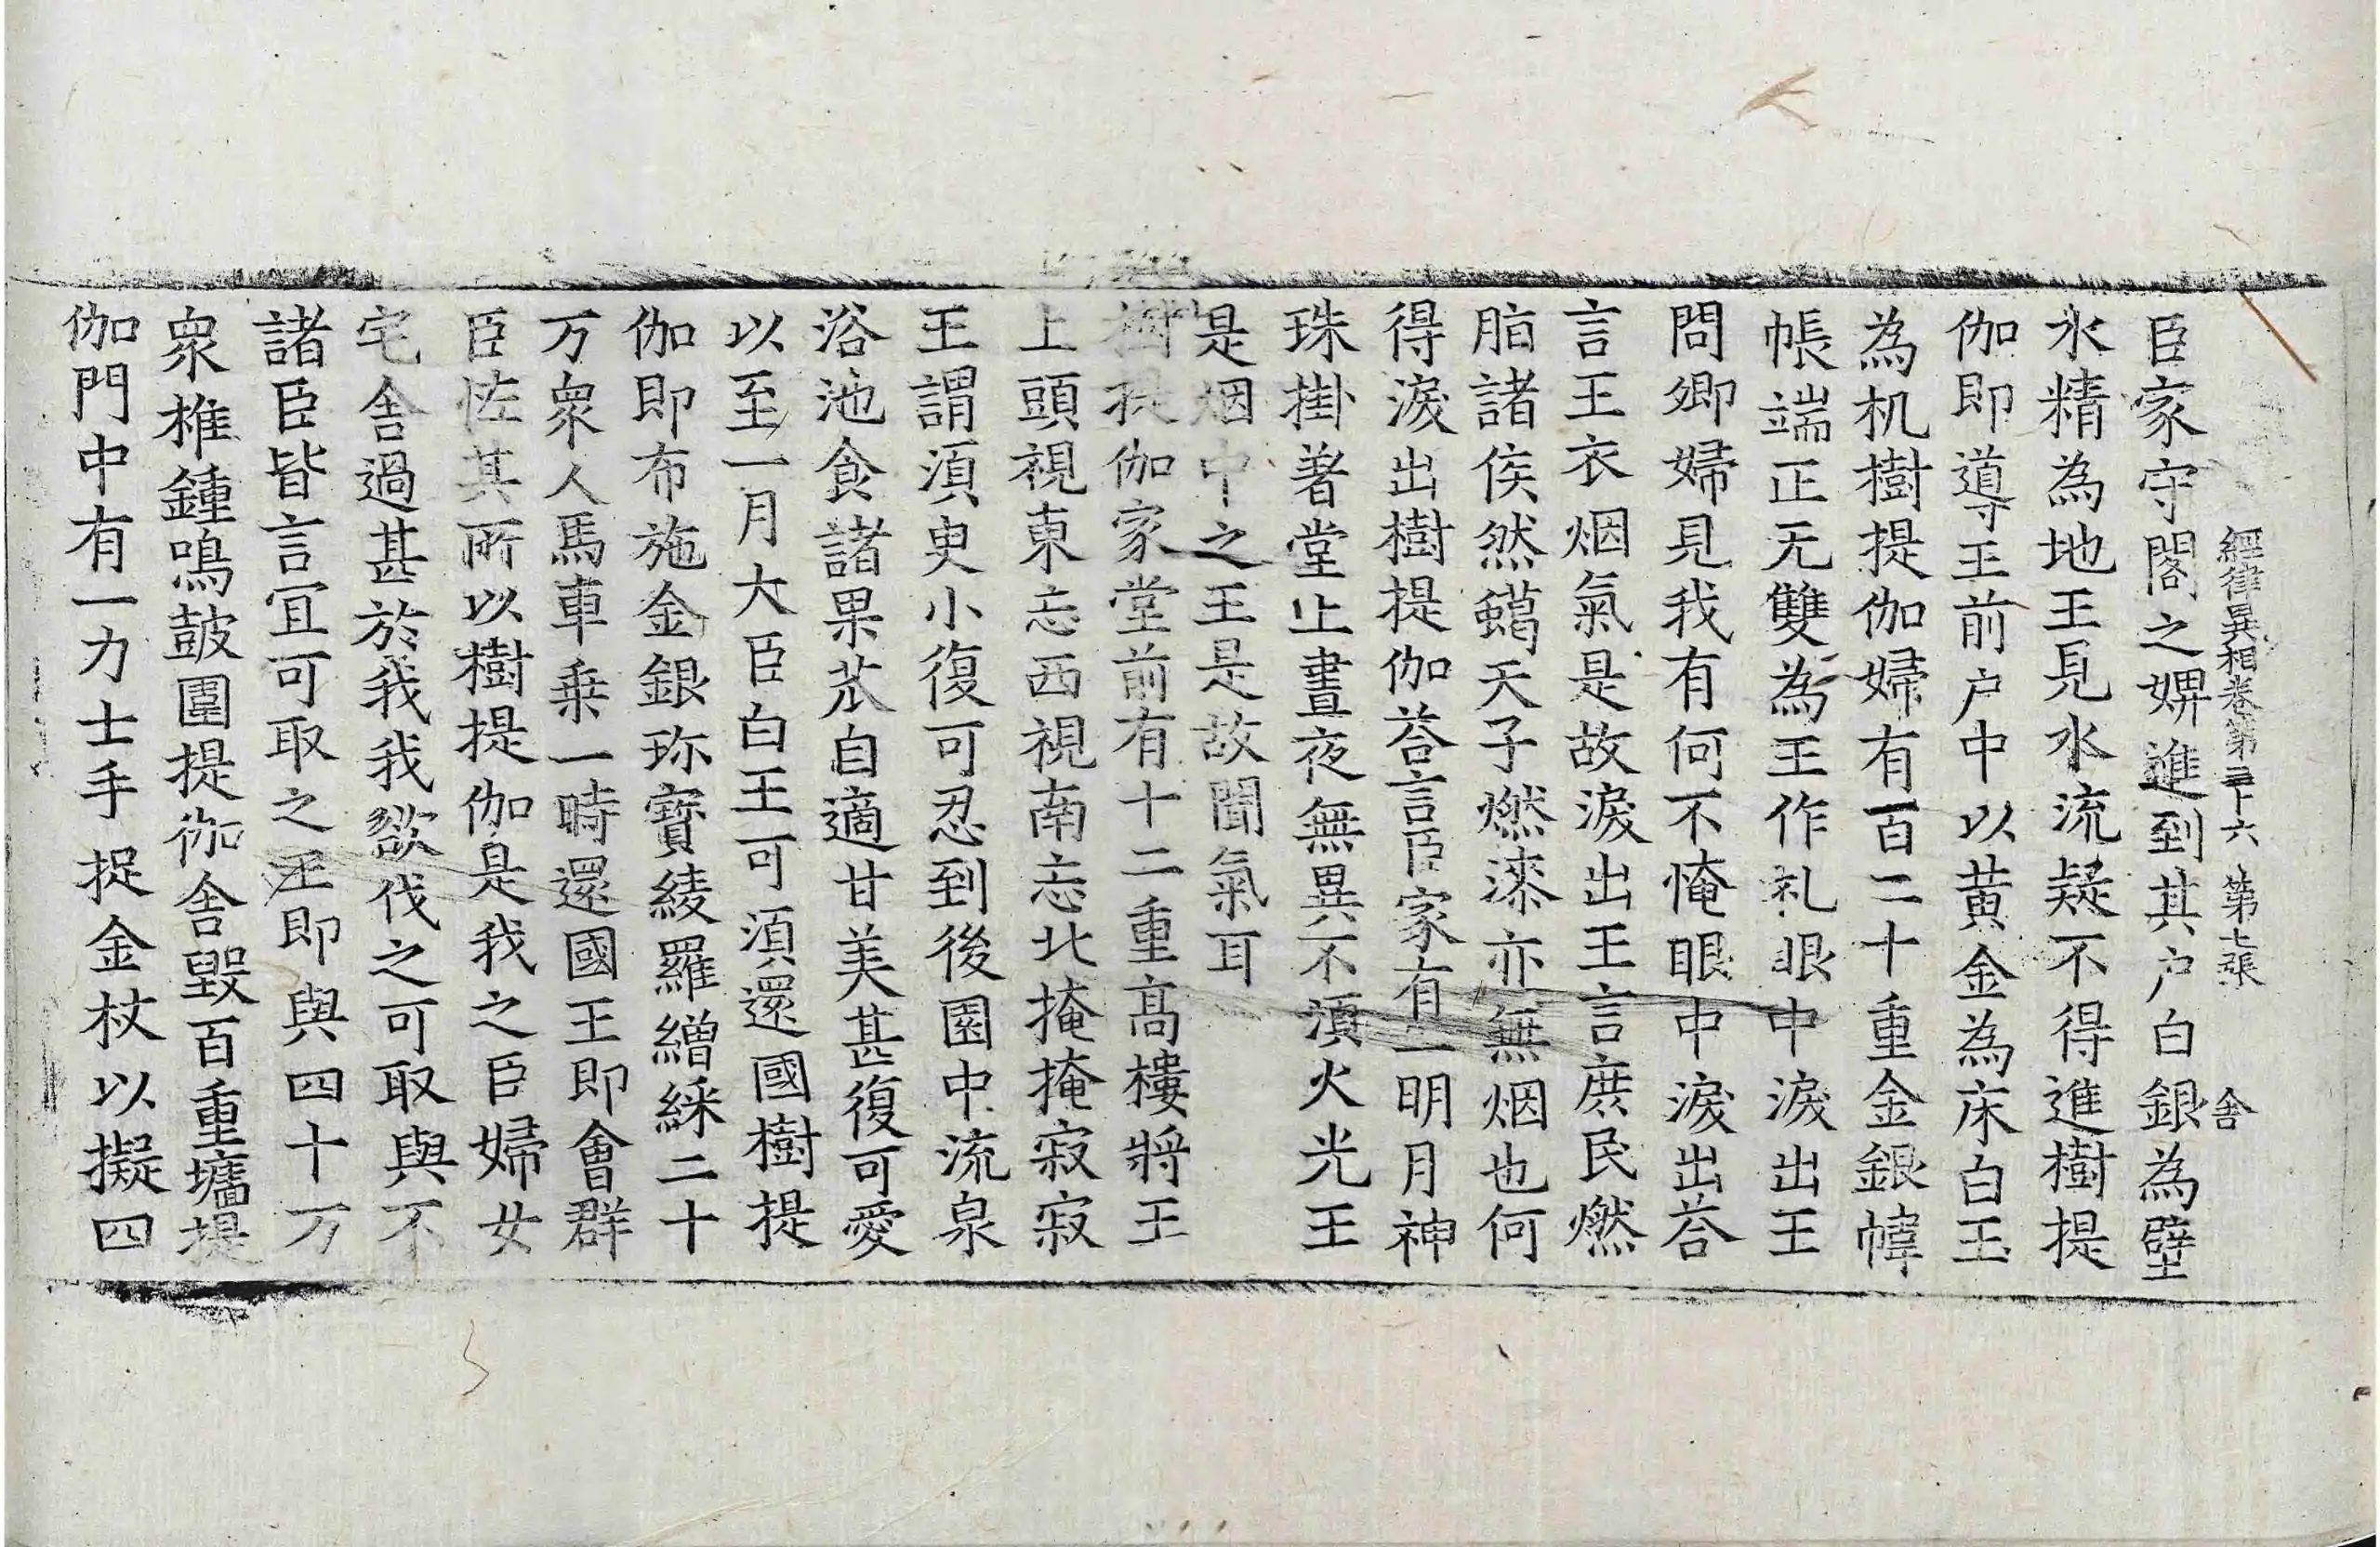 經律異相卷第三十六 第七張 舍
臣家守閤之婢進到其户白銀為壁
水精為地王見水流疑不得進樹提
伽即導王前户中以黄金為床白玉
為机樹提伽婦有百二十重金銀幃
帳端正无雙為王作礼眼中淚出王
問卿婦見我有何不悀眼中淚出荅
言王衣烟氣是故淚出王言庶民燃
脂諸侯然蠟天子燃漆亦無烟也何
得淚出樹提伽荅言臣家有一明月神
珠掛著堂止晝夜無異不湏火光王
是烟中之王是故聞氣耳
樹提伽家堂前有十二重髙樓將王
上頭視東忘西視南忘北掩掩寂寂
王謂湏臾小復可忍到後園中流泉
浴池食諸果苽自適甘美甚復可愛
以至一月大臣白王可湏還國樹提
伽即布施金銀珎寶綾羅繒綵二十
万衆人馬車乗一時還國王即會群
臣恠其所以樹提伽是我之臣婦女
宅舍過甚於我我欲伐之可取與不
諸臣皆言冝可取之王即與四十万
衆椎鍾鳴鼓圍提伽舍毀百重壚提
伽門中有一力士手捉金杖以擬四